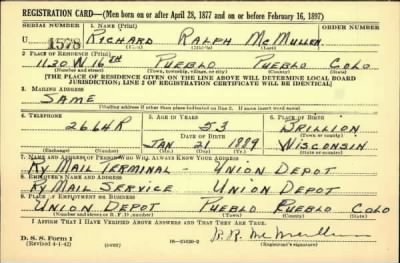 REGISTRATION CARD—(Men born on or after April 28, 1877 and on or before February 16, 1897)
SERIAL NUMBER 1. NAME (Print) ORDER NUMBER
U 1578 RICHARD RALPH MCMULLEN
(First) (Middle) (Last)
2. PLACE OF RESIDENCE (Print)
1120 N 16th PUEBLO PUEBLO COLO
(Number and street) (Town, township, village, or city) (County) (State)
[THE PLACE OF RESIDENCE GIVEN ON THE LINE ABOVE WILL DETERMINE LOCAL BOARD
JURISDICTION; LINE 2 OF REGISTRATION CERTIFICATE WILL BE IDENTICAL]
3. MAILING ADDRESS
SAME
[Mailing address if other than place indicated on line 2. If same insert word same]
4. TELEPHONE 5. AGE IN YEARS 6. PLACE OF BIRTH
2664R 53 BRILLION
DATE OF BIRTH (Town or county)
JAN 21 1889 WISCONSIN
(Exchange) (Number) (Mo.) (Day) (Yr.) (State or country)
7. NAME AND ADDRESS OF PERSON WHO WILL ALWAYS KNOW YOUR ADDRESS
RY MAIL TERMINAL - UNION DEPOT
8. EMPLOYER'S NAME AND ADDRESS
RY MAIL SERVICE UNION DEPOT
9. PLACE OF EMPLOYMENT OR BUSINESS
UNION DEPOT PUEBLO PUEBLO COLO
(Number and street or R. F. D. number) (Town) (County) (State)
I AFFIRM THAT I HAVE VERIFIED ABOVE ANSWERS AND THAT THEY ARE TRUE.
D. S. S. Form 1
(Revised 4-1-42) (over) 16—21630-2 R.R. McMullen
(Registrant's signature)